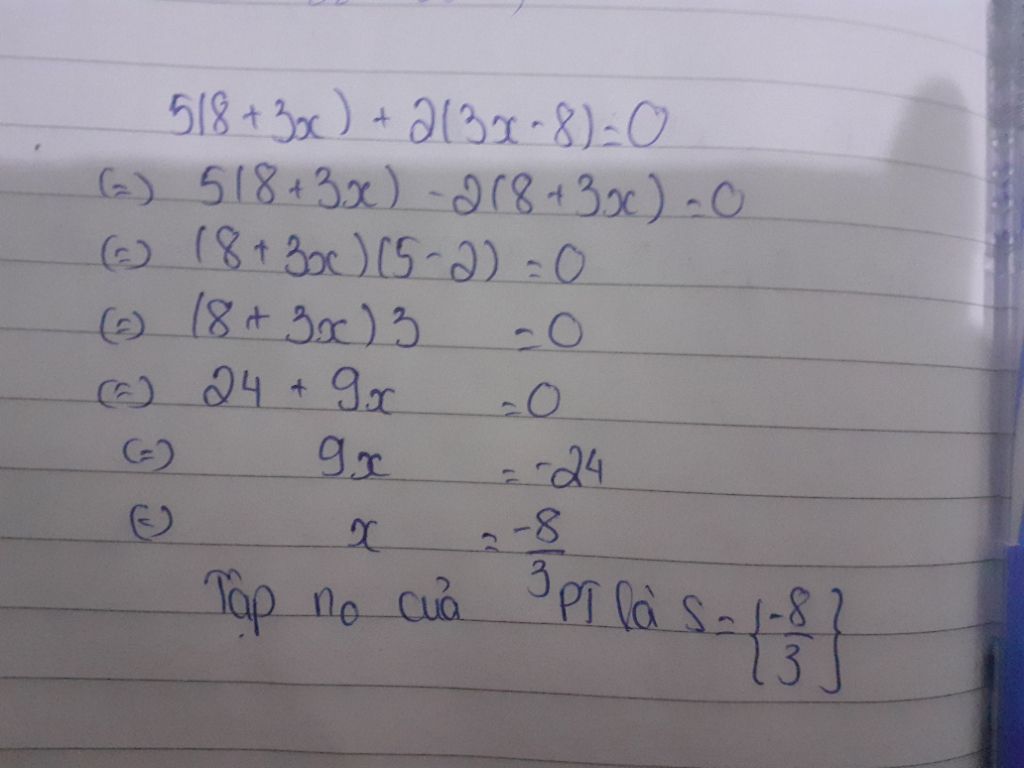 5(8 + 3x) + 2(3x - 8) = 0
(=) 5(8 + 3x) - 2(8 + 3x) = 0
(=) (8 + 3x)(5 - 2) = 0
(=) (8 + 3x) 3 = 0
(=) 24 + 9x = 0
(=) 9x = -24
(=) x = -8/3
Tập no của PT là S = {-8/3}